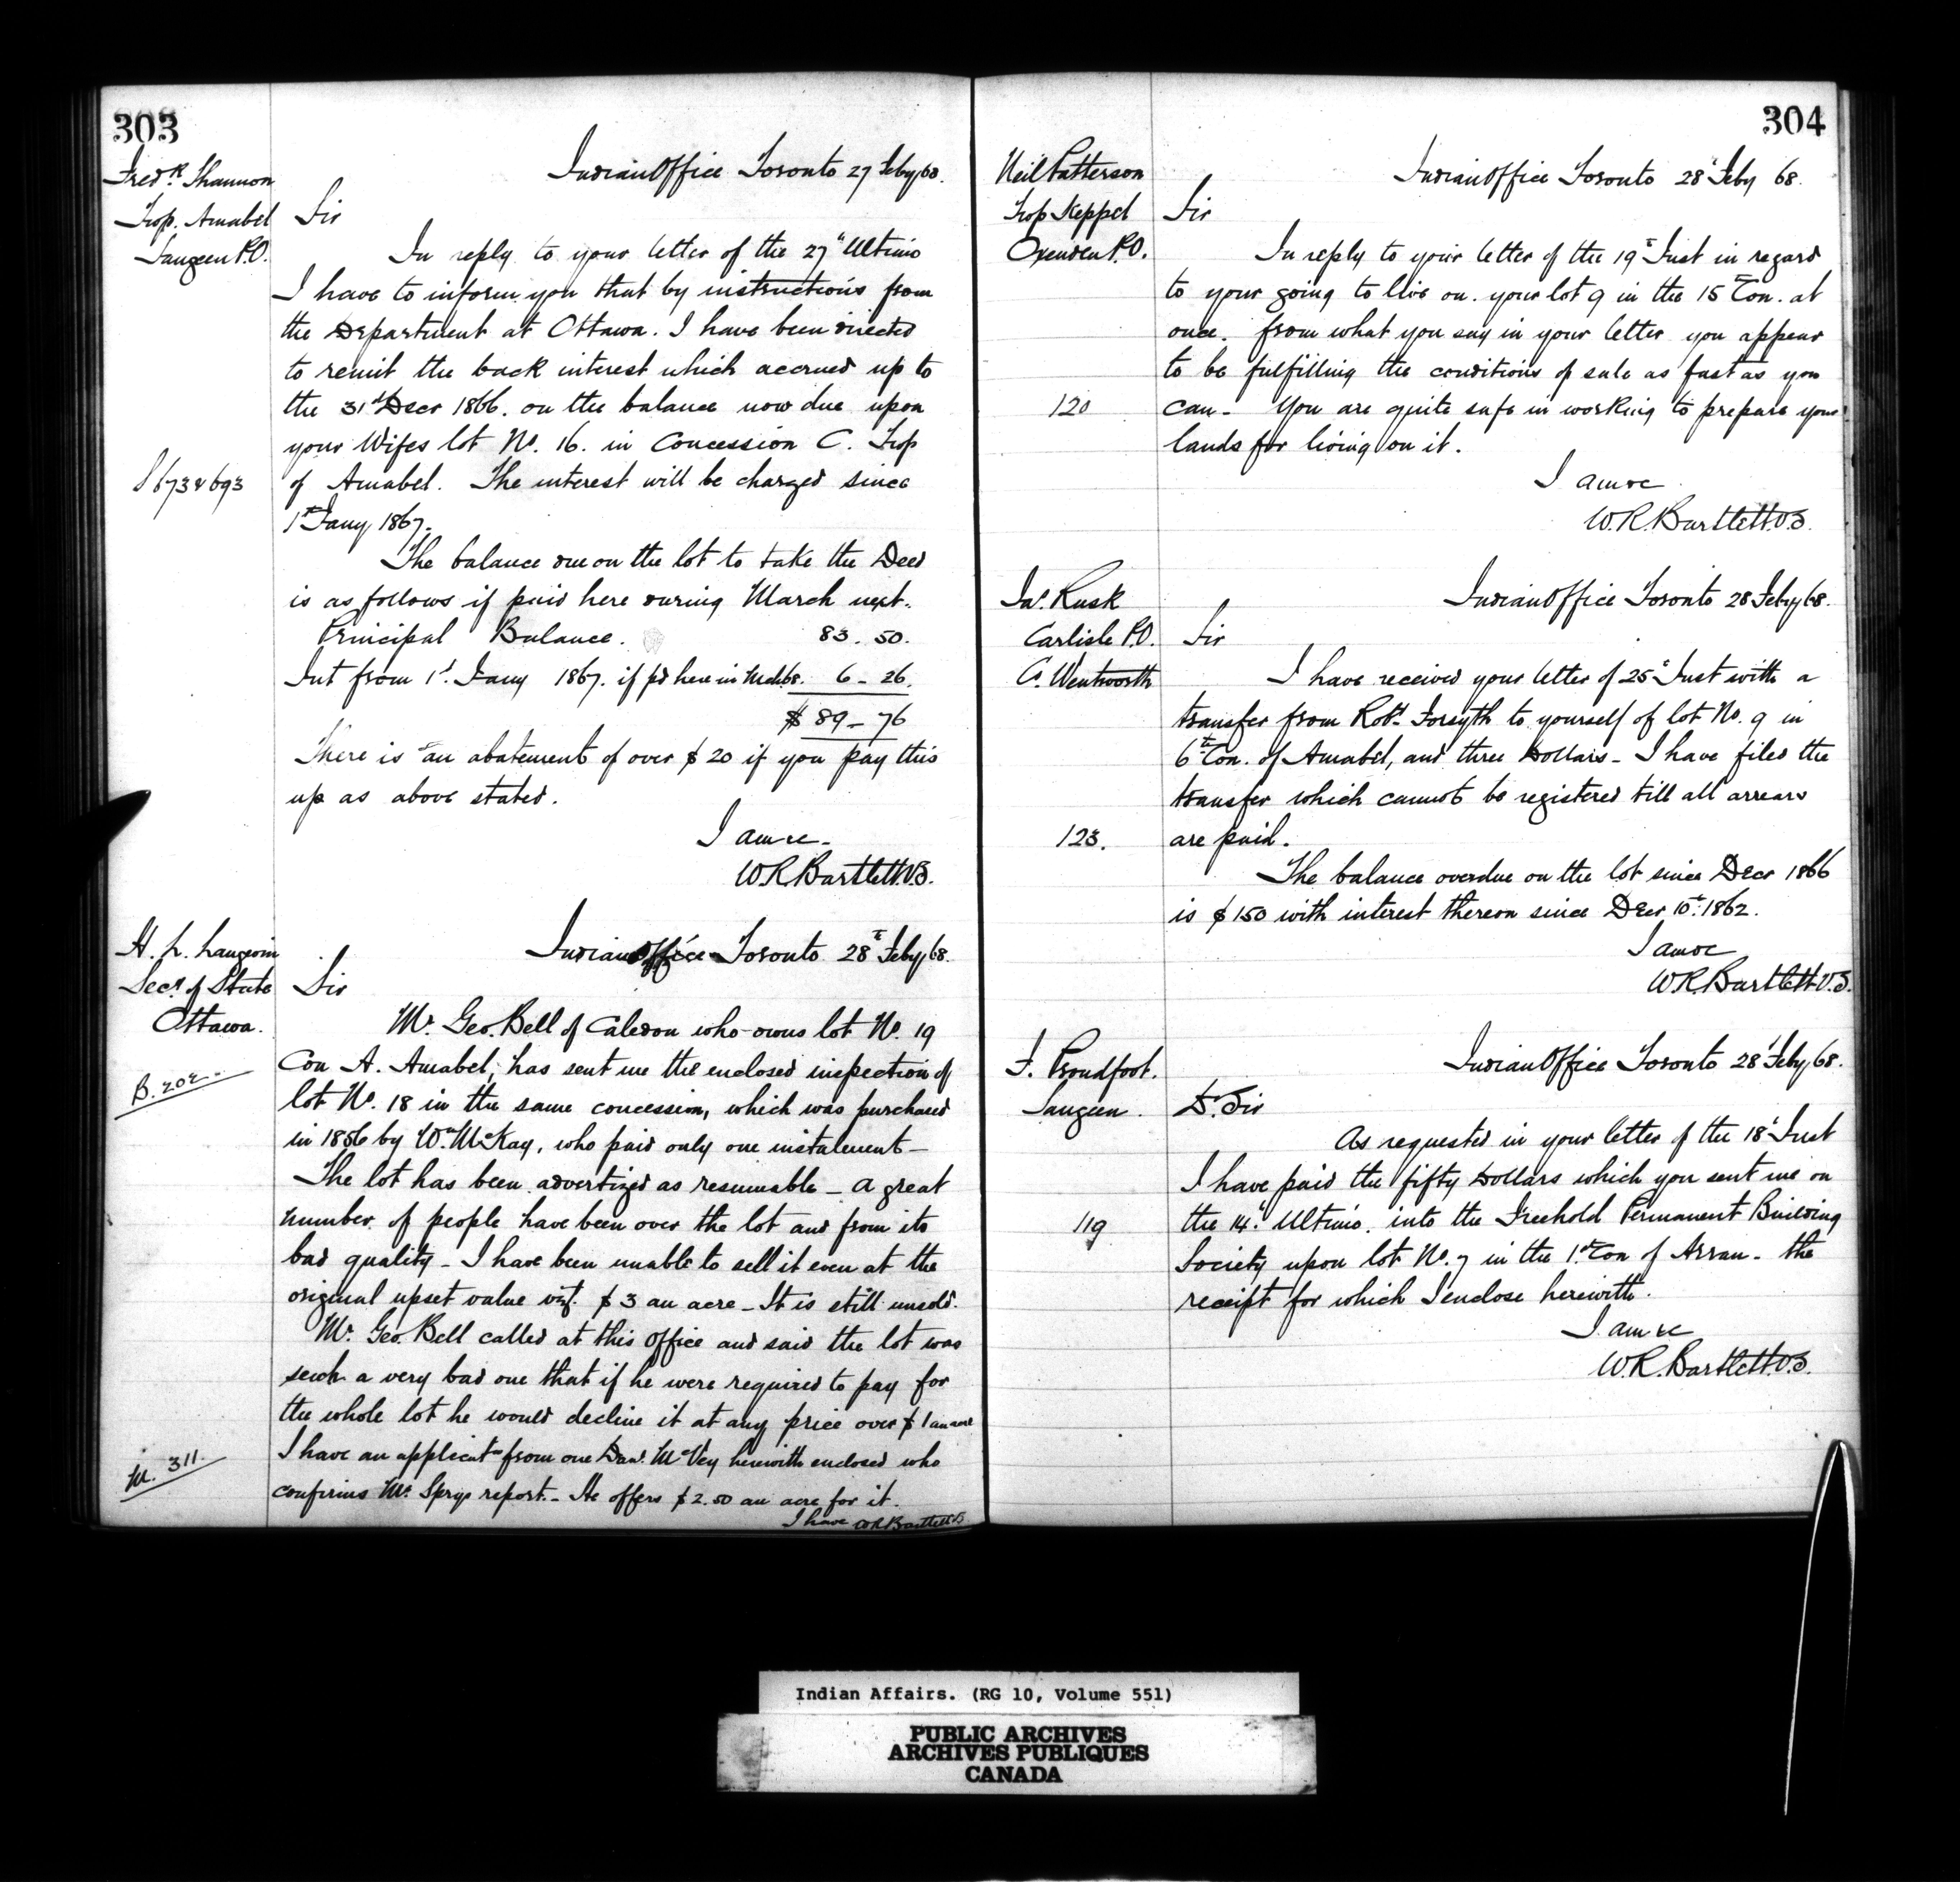 303
Fred.k Shannon
Twp. Amabel
Saugeen P.O.
Indian Office Toronto 27 Feby 68.
Sir
In reply to your letter of the 27th Ultimo
I have to inform you that by instructions from
the Department at Ottawa. I have been directed
to remit the back interest which accrued up to
the 31st Decr 1866. on the balance now due upon
your Wifes lot No. 16. in Concession C. Twp
S 673 & 693
of Amabel. The interest will be charged since
1st Jany 1867.
The balance due on the lot to take the Deed
is as follows if paid here during March next.
Principal Balance. 83. 50.
Int from 1st Jany 1867. if pd here in Mch 68. 6 - 26.
$ 89 - 76
There is an abatement of over $ 20 if you pay this
up as above stated.
I am &c.
W.R. Bartlett V.S.
H. L. Langevin
Secy of State
Ottawa.
Indian Office Toronto 28th Feby 68.
Sir
Mr. Geo. Bell of Caledon who owns lot No. 19
B. 202
Con A. Amabel, has sent me the enclosed inspection of
lot No. 18 in the same concession, which was purchased
in 1856 by Wm McKay, who paid only one instalment —
The lot has been advertized as resumable — a great
number of people have been over the lot and from its
bad quality — I have been unable to sell it even at the
original upset value vizt. $ 3 an acre — It is still unsold.
Mr. Geo. Bell called at this Office and said the lot was
such a very bad one that if he were required to pay for
the whole lot he would decline it at any price over $ 1 an acre
M. 311.
I have an applicatn from one Danl. McVey herewith enclosed who
confirms Mr. Sprys report. — He offers $ 2.50 an acre for it.
I have WR Bartlett VS
304
Neil Patterson
Twp Keppel
Oxenden P.O.
Indian Office Toronto 28th Feby 68.
Sir
In reply to your letter of the 19th Inst in regard
to your going to live on your lot 9 in the 15th Con. at
once. from what you say in your letter you appear
to be fulfilling the conditions of sale as fast as you
120
can — You are quite safe in working to prepare your
lands for living on it.
I am &c
W.R. Bartlett V.S.
Jas. Rusk
Carlisle P.O.
Co. Wentworth
Indian Office Toronto 28 Feby 68.
Sir
I have received your letter of 25th Inst with a
transfer from Robt. Forsyth to yourself of lot No. 9 in
6th Con. of Amabel, and three Dollars — I have filed the
transfer which cannot be registered till all arrears
123.
are paid.
The balance overdue on the lot since Decr 1866
is $ 150 with interest thereon since Decr 10th 1862.
I am &c
W.R. Bartlett V.S.
F. Proudfoot.
Saugeen.
Indian Office Toronto 28th Feby 68.
D. Sir
As requested in your letter of the 18th Inst
I have paid the fifty Dollars which you sent me on
119
the 14th Ultimo. into the Freehold Permanent Building
Society upon lot No. 7 in the 1st Con of Arran — the
receipt for which I enclose herewith.
I am &c
W.R. Bartlett V.S.
Indian Affairs. (RG 10, Volume 551)
PUBLIC ARCHIVES
ARCHIVES PUBLIQUES
CANADA